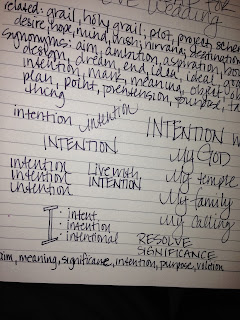 FOR
Leading
related: grail, holy grail, plot, project, scheme
desire, hope, mind, wish, nirvana, destination
synonyms: aim, ambition, aspiration,
design, dream, end, idea, ideal,
intention, mark, meaning, object,
plan, point, pretension, purpose,
thing
intention intention INTENTION
INTENTION
My GOD
intention Live with My temple
intention INTENTION
intention My family
I: intent My calling
: intention
: intentional RESOLVE
SIGNIFICANCE
aim, meaning, significance, intention, purpose, volition